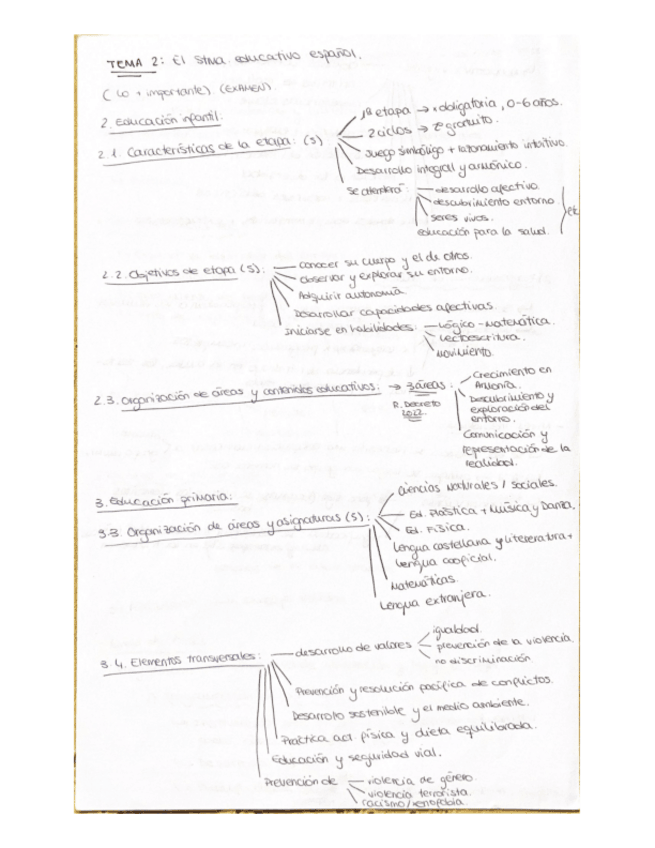 TEMA 2: El stma educativo español.
(Lo + importante). (EXAMEN).
2. Educación infantil:
2.1. Características de la etapa: (5)
1ª etapa → obligatoria, 0-6 años.
2 ciclos → 2º gratuito.
Juego simbóligo + razonamiento intuitivo.
Desarrollo integral y armónico.
Se atenderá:
desarrollo afectivo
descubrimiento entorno
seres vivos.
educación para la salud.
etc
2.2. Objetivos de etapa (5):
Conocer su cuerpo y el de otros.
Observar y explorar su entorno.
Adquirir autonomía.
Desarrollar capacidades afectivas.
Iniciarse en habilidades:
Lógico-Matemática.
Lectoescritura.
Movimiento.
2.3. Organización de áreas y contenidos educativos: → 3 áreas:
R. Decreto
2022.
Crecimiento en
Armonía.
Descubrimiento y
exploración del
entorno.
Comunicación y
representación de la
realidad.
3. Educación primaria:
3.3. Organización de áreas y asignaturas (5):
Ciencias Naturales / Sociales.
Ed. Plástica + Música y Danza.
Ed. Física.
Lengua castellana y litereratura +
Lengua cooficial.
Matemáticas.
Lengua extranjera.
3.4. Elementos transversales:
desarrollo de valores
igualdad.
prevención de la violencia
no discriminación
Prevención y resolución pacífica de conflictos.
Desarrollo sostenible y el medio ambiente.
Práctica act. física y dieta equilibrada.
Educación y seguridad vial.
Prevención de
violencia de género.
violencia terrorista.
racismo/xenofobia.